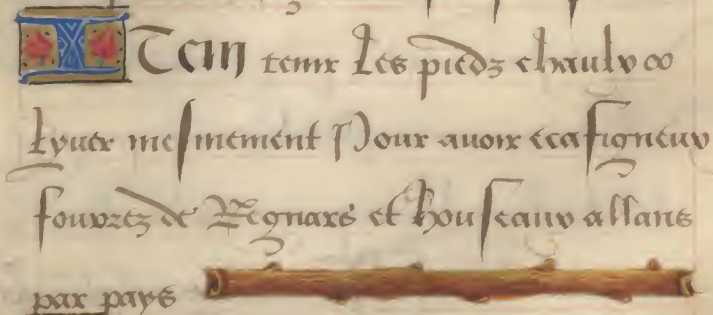 ITem tenir Les piedz chaulx oo
Lyuer mesmement Pour auoir escafigneux
fourrez de Regnars et houseaux allans
par pays